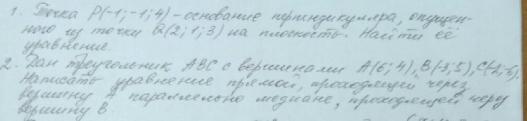 1. Точка P(-1; -1; 4) - основание перпендикуляра, опущен-
ного из точки Q(2; 1; 3) на плоскость. Найти её
уравнение.
2. Дан треугольник ABC с вершинами A(6; 4), B(-3; 5),
Написать уравнение прямой, проходящей через
вершину A параллельно медиане, проходящей через
вершину B